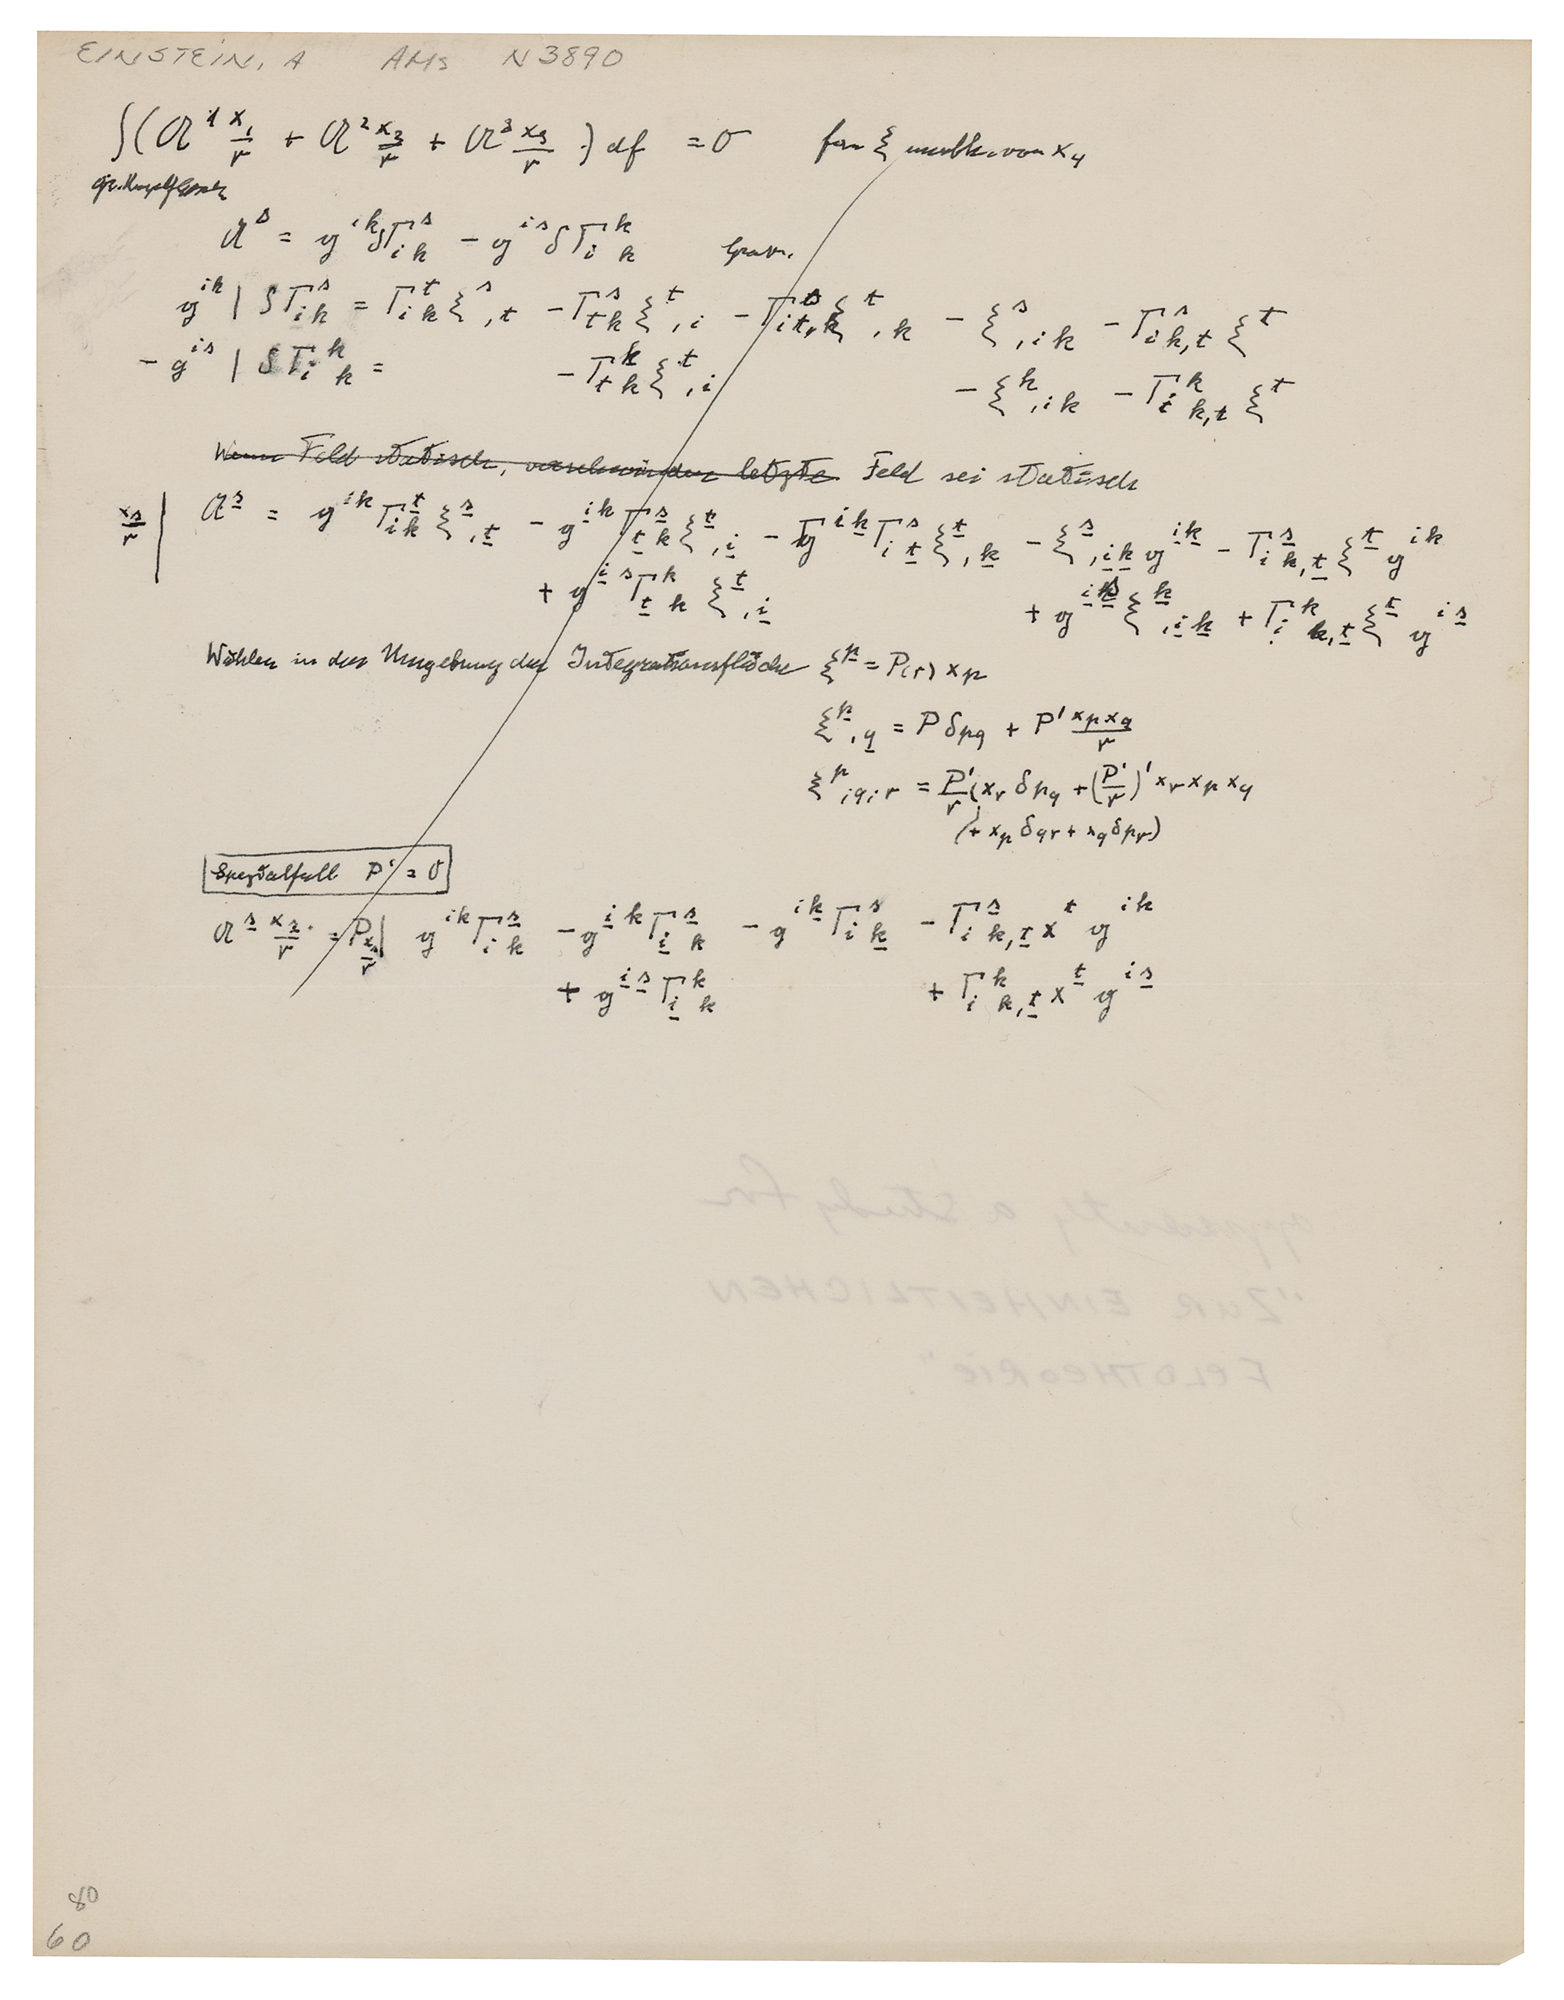 EINSTEIN, A AMs N3890
∫(𝔄¹ x₁/r + 𝔄² x₂/r + 𝔄³ x₃/r) df = 0 für ξ unabh. von x₄
𝔄^s = g^{ik} δΓ_{ik}^s − g^{is} δΓ_{ik}^k Grav.
g^{ik} | δΓ_{ik}^s = Γ_{ik}^t ξ^s_{,t} − Γ_{tk}^s ξ^t_{,i} − Γ_{it}^s ξ^t_{,k} − ξ^s_{,ik} − Γ_{ik,t}^s ξ^t
− g^{is} | δΓ_{ik}^k = − Γ_{tk}^k ξ^t_{,i} − ξ^k_{,ik} − Γ_{ik,t}^k ξ^t
Wenn Feld statisch, verschwinden letzte Feld sei statisch
x_s/r | 𝔄^s̲ = g^{ik} Γ_{ik}^t̲ ξ^s̲_{,t̲} − g^{i̲k} Γ_{t̲k}^s̲ ξ^t̲_{,i̲} − g^{ik̲} Γ_{it̲}^s ξ^t̲_{,k̲} − ξ^s̲_{,i̲k̲} g^{i̲k̲} − Γ_{ik,t̲}^s̲ ξ^t̲ g^{ik}
+ g^{i̲s} Γ_{t̲k}^k ξ^t̲_{,i̲} + g^{i̲s̲} ξ^k̲_{,i̲k̲} + Γ_{ik,t̲}^k ξ^t̲ g^{is̲}
Wählen in der Umgebung der Integrationsfläche ξ^p̲ = P(r) x_p
ξ^p̲_{,q̲} = P δ_{pq} + P' x_p x_q/r
ξ^p_{,q,r} = P'/r (x_r δ_{pq} + (P'/r)' x_r x_p x_q
(+ x_p δ_{qr} + x_q δ_{pr})
Spezialfall P' = 0
𝔄^s̲ x_s̲/r = P x_s/r | g^{ik} Γ_{ik}^s̲ − g^{i̲k} Γ_{i̲k}^s̲ − g^{ik̲} Γ_{ik̲}^s − Γ_{ik,t̲}^s̲ x^t g^{ik}
+ g^{i̲s̲} Γ_{i̲k}^k + Γ_{ik,t̲}^k x^t̲ g^{is̲}
apparently a study for
"ZUR EINHEITLICHEN
FELDTHEORIE"
80
60